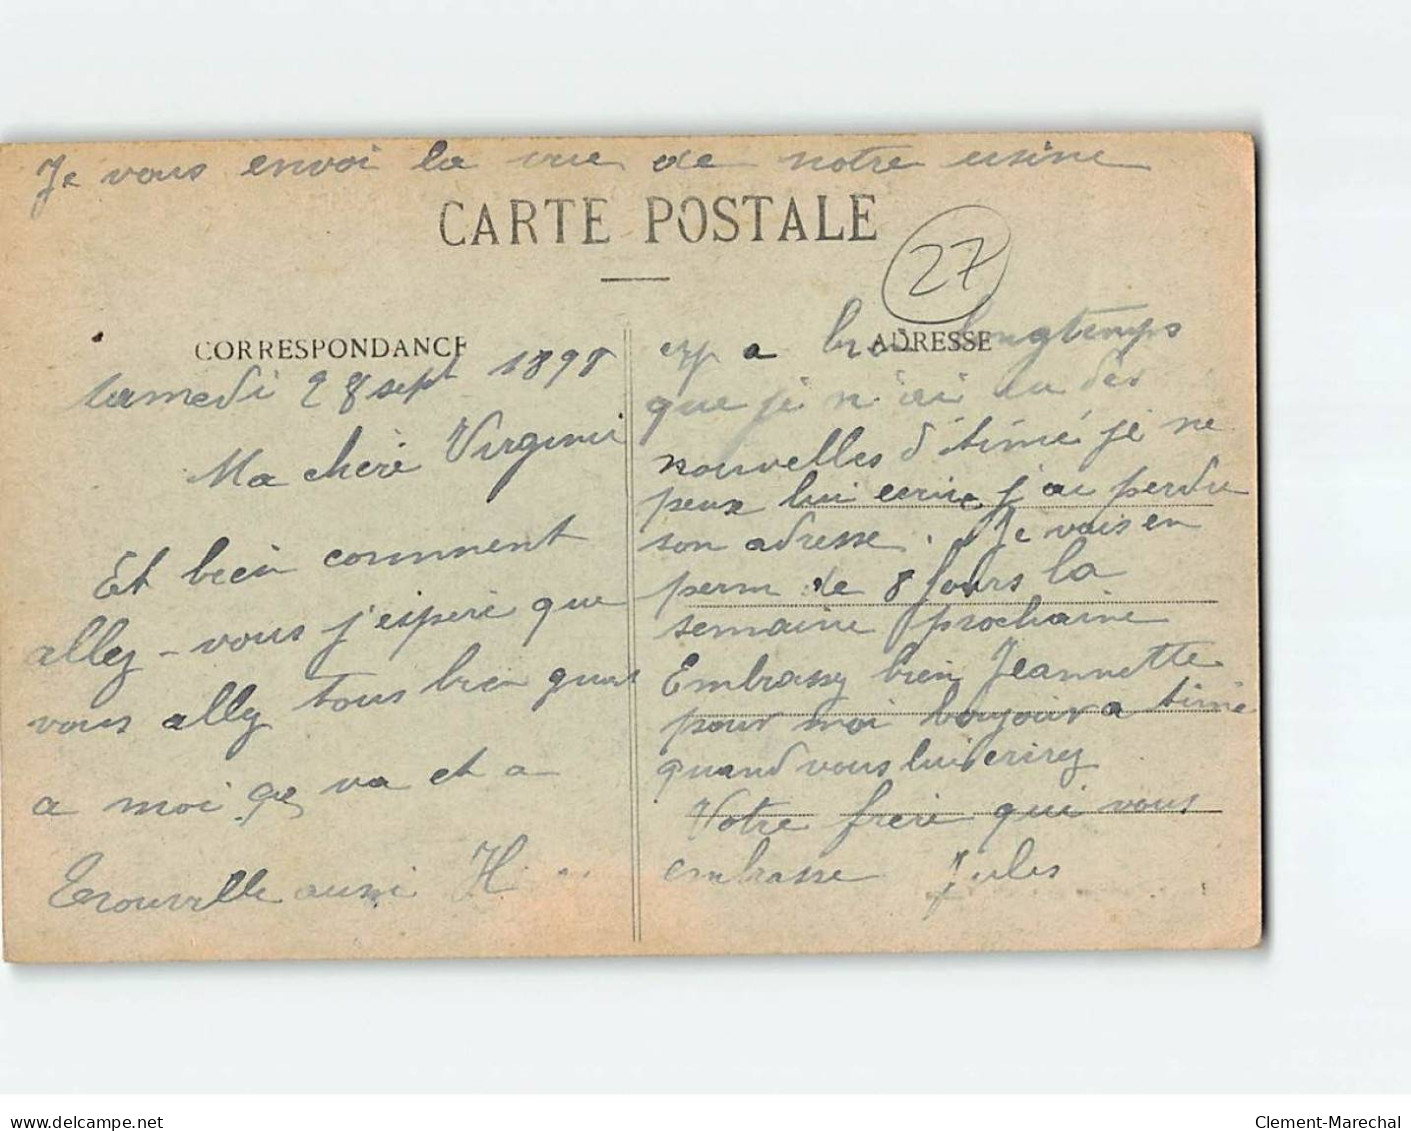 Je vous envoi la vue de notre usine
CARTE POSTALE
27
CORRESPONDANCE
samedi 28 sept 1898
Ma chère Virginie
Et bien comment
allez-vous j'espère que
vous allez tous bien quas
a moi ça va et a
Trouville aussi H
ADRESSE
a longtemps
que je n'ai eu des
nouvelles d'timé je ne
peux lui ecrire j'ai perdu
son adresse. Je vais en
perm de 8 jours la
semaine prochaine
Embrassez bien Jeannette
pour moi bonjour a timé
quand vous lui écrirez
Votre frère qui vous
embrasse Jules
www.delcampe.net
Clement-Marechal